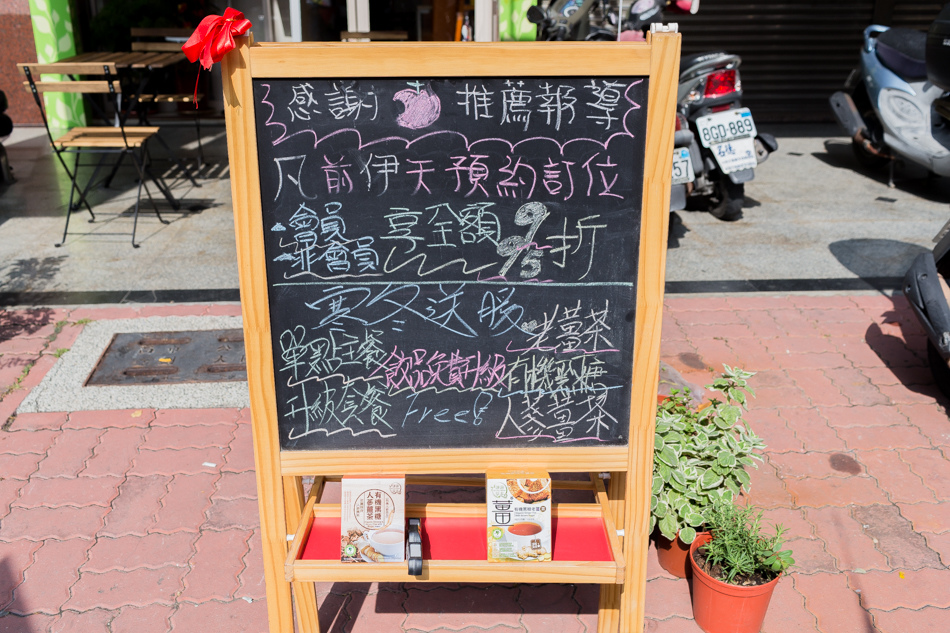 感謝 推薦報導
凡前伊天預約訂位
會員
非會員
享全額
9
95
折
寒冬送暖
單點主餐
升級套餐
飲品免費升級
Free!
老薑茶
有機黑糖
人蔘薑茶
有機黑糖
人蔘薑茶
薑
8GD-889
57